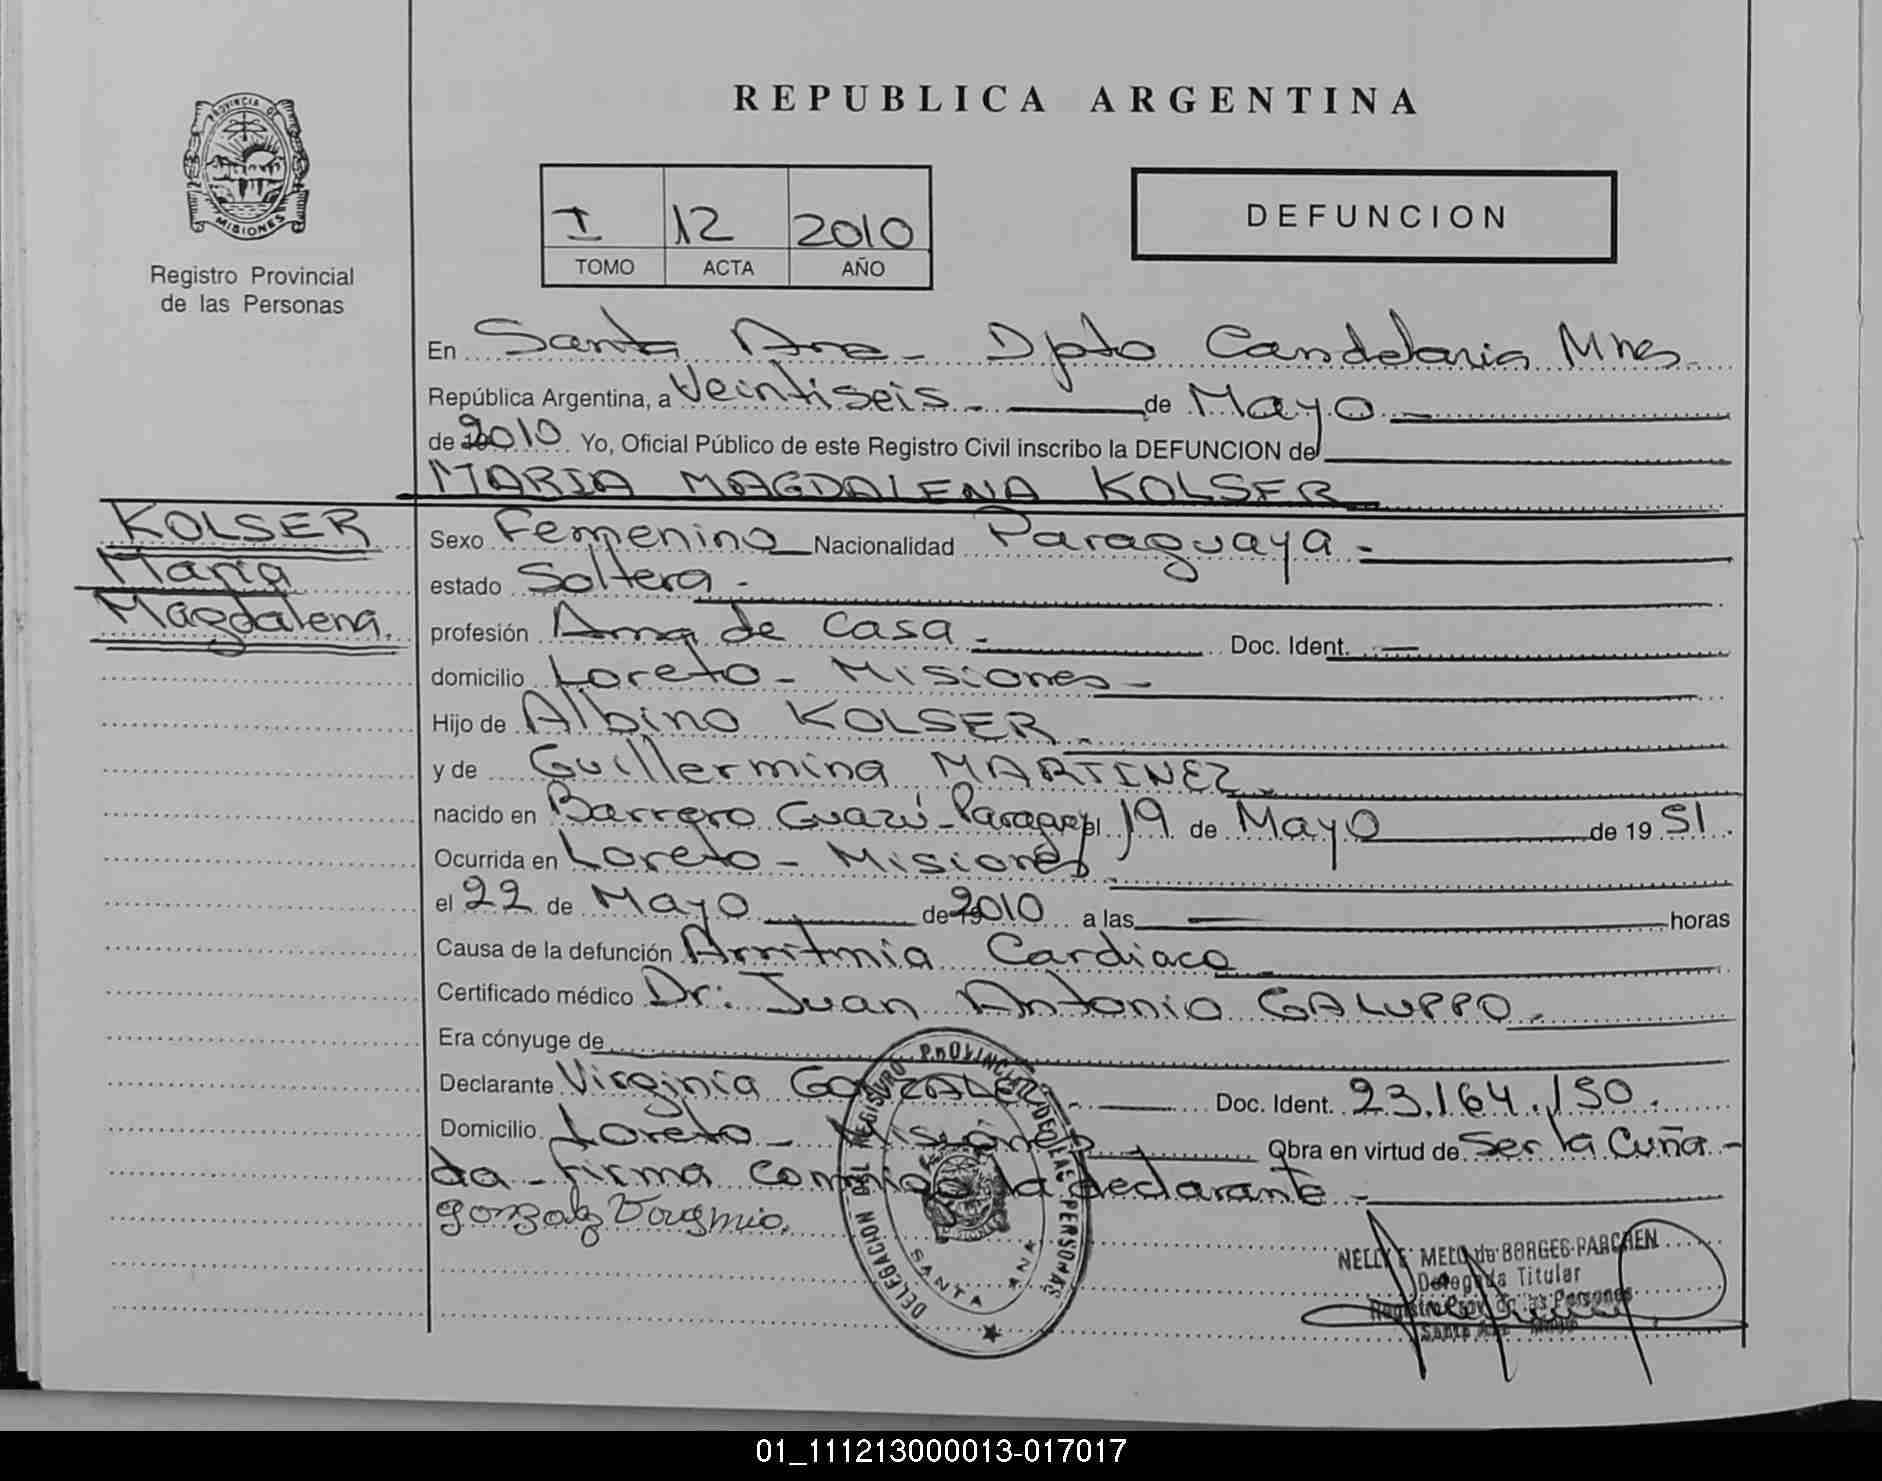 REPUBLICA ARGENTINA
PROVINCIA DE
MISIONES
Registro Provincial
de las Personas
I 12 2010
TOMO ACTA AÑO
DEFUNCION
En Santa Ana - Dpto Candelaria Mnes.
República Argentina, a Veintiseis - de Mayo -
de 2010 Yo, Oficial Público de este Registro Civil inscribo la DEFUNCION de
MARIA MAGDALENA KOLSER
KOLSER
Maria
Magdalena.
Sexo Femenino Nacionalidad Paraguaya -
estado Soltera -
profesión Ama de Casa - Doc. Ident. —
domicilio Loreto - Misiones -
Hijo de Albino KOLSER.
y de Guillermina MARTINEZ.
nacido en Barrero Guazú - Paraguay el 19 de Mayo de 19 51.
Ocurrida en Loreto - Misiones
el 22 de Mayo de 2010 a las — horas
Causa de la defunción Arritmia Cardiaca
Certificado médico Dr: Juan Antonio GALUPPO.
Era cónyuge de
Declarante Virginia GONZALEZ. - Doc. Ident. 23.164.150.
Domicilio Loreto - Misiones Obra en virtud de Ser la Cuña -
da - firma conmigo la declarante -
Gonzalez Virginia.
DELEGACION DEL REGISTRO PROVINCIAL DE LAS PERSONAS
SANTA ANA
NELLY E. MELO de BORGES PARCHEN
Delegada Titular
Registro Prov. de las Personas
Santa Ana
01_111213000013-017017